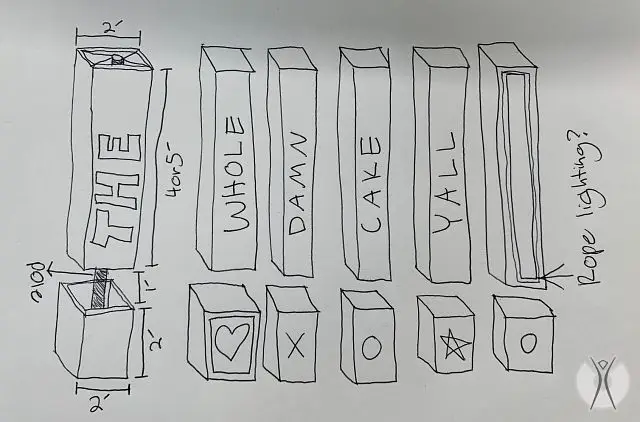 2'
THE
4 or 5'
pole
1'
2'
2'
WHOLE
DAMN
X
CAKE
YALL
Rope lighting?